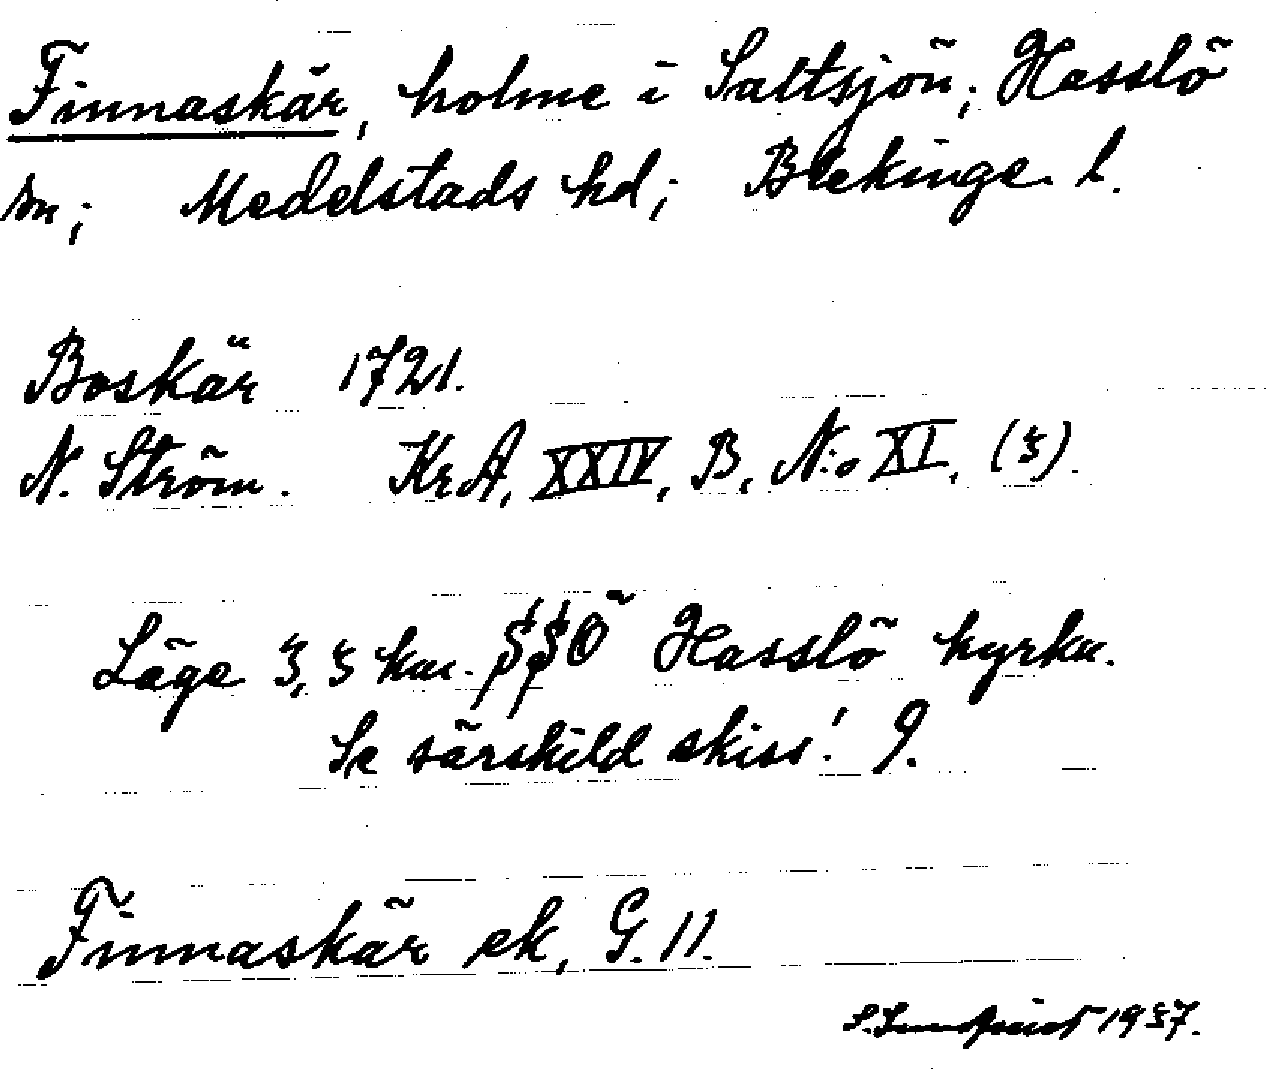 Finnaskär, holme i Saltsjön; Hasslö
sn; Medelstads hd; Blekinge l.
Boskär 1721.
N. Ström. KrA, XXIV, B, N:o XI, (3).
Läge 3,3 km. SSO Hasslö kyrka.
Se särskild skiss! 9.
Finnaskär ek, G. 11.
S. Lundquist 1937.